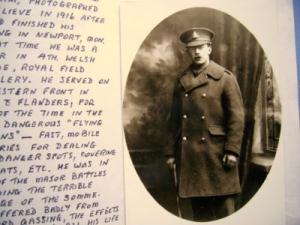 , PHOTOGRAPHED
LIEVE IN 1916 AFTER
D FINISHED HIS
NG IN NEWPORT, MON.
AT TIME HE WAS A
R IN 4TH WELSH
DE, ROYAL FIELD
LLERY. HE SERVED ON
ESTERN FRONT IN
E & FLANDERS; FOR
OF THE TIME IN THE
DANGEROUS "FLYING
NS" – FAST, MOBILE
RIES FOR DEALING
DANGER SPOTS, COVERING
ATS, ETC. HE WAS IN
OF THE MAJOR BATTLES
ING THE TERRIBLE
GE OF THE SOMME.
FFERED BADLY FROM
RD GASSING, THE EFFECTS
HIS LIFE